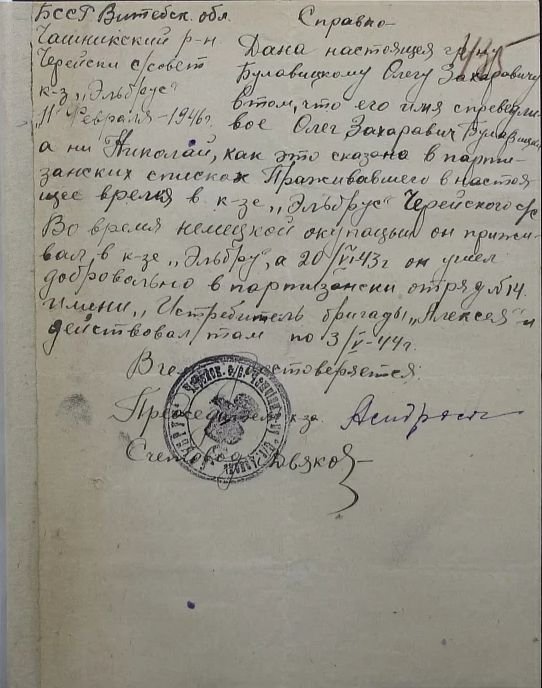 БССР Витебск. обл.
Чашникский р-н
Черейски с/совет
к-з „Эльбрус"
„11" Февраля-1946г.
Справка
Дана настоящея гр-ну
Булавицкому Олегу Захаравичу
втом, что его имя справедли-
вое Олег Захаравич Булавицки
а ни Николай, как это сказана в парти-
занских списках Праживавшего в настоя
щее время в к-зе „Эльбрус" Черейского с/с
Во время немецкой окупацыи он прижи-
вал в к-зе „Эльбру", а 20/VI-43г он ушел
добровольно в партизански отряд №14
имени „Истребитель бригады „Алексея" и
действовал там по 3/V-44г.
В
Председатель к-за
Счетовод Дьяков